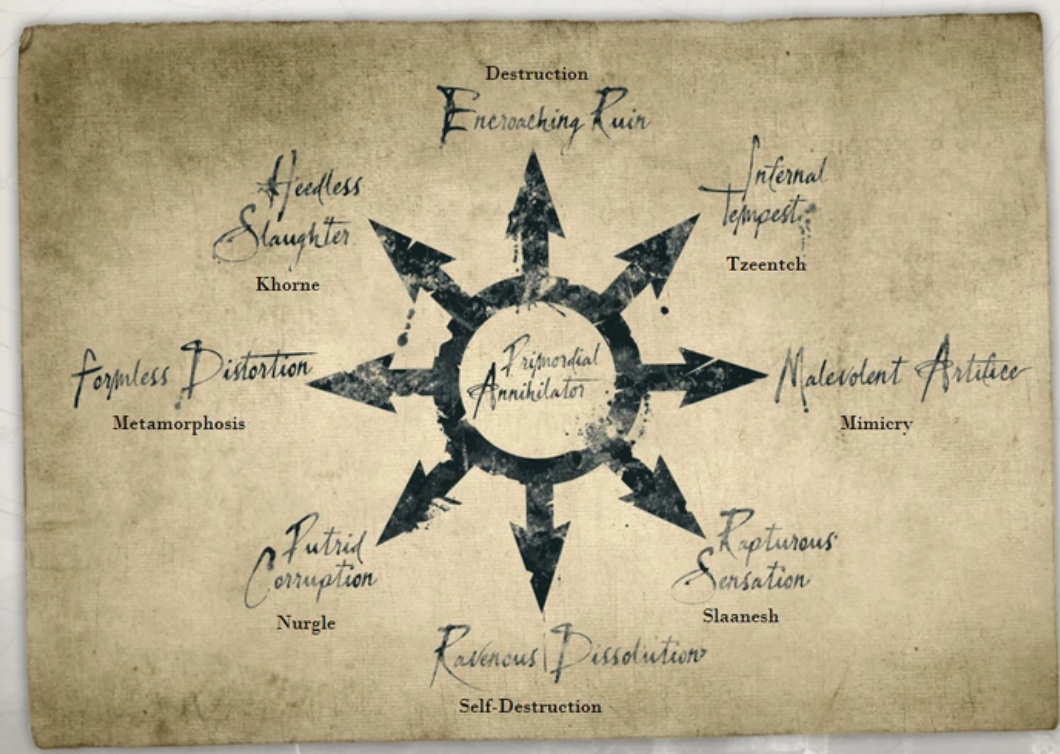 Destruction
Encroaching Ruin
Heedless
Slaughter
Khorne
Infernal
Tempest
Tzeentch
Formless Distortion
Metamorphosis
Primordial
Annihilator
Malevolent Artifice
Mimicry
Putrid
Corruption
Nurgle
Rapturous
Sensation
Slaanesh
Ravenous Dissolution
Self-Destruction